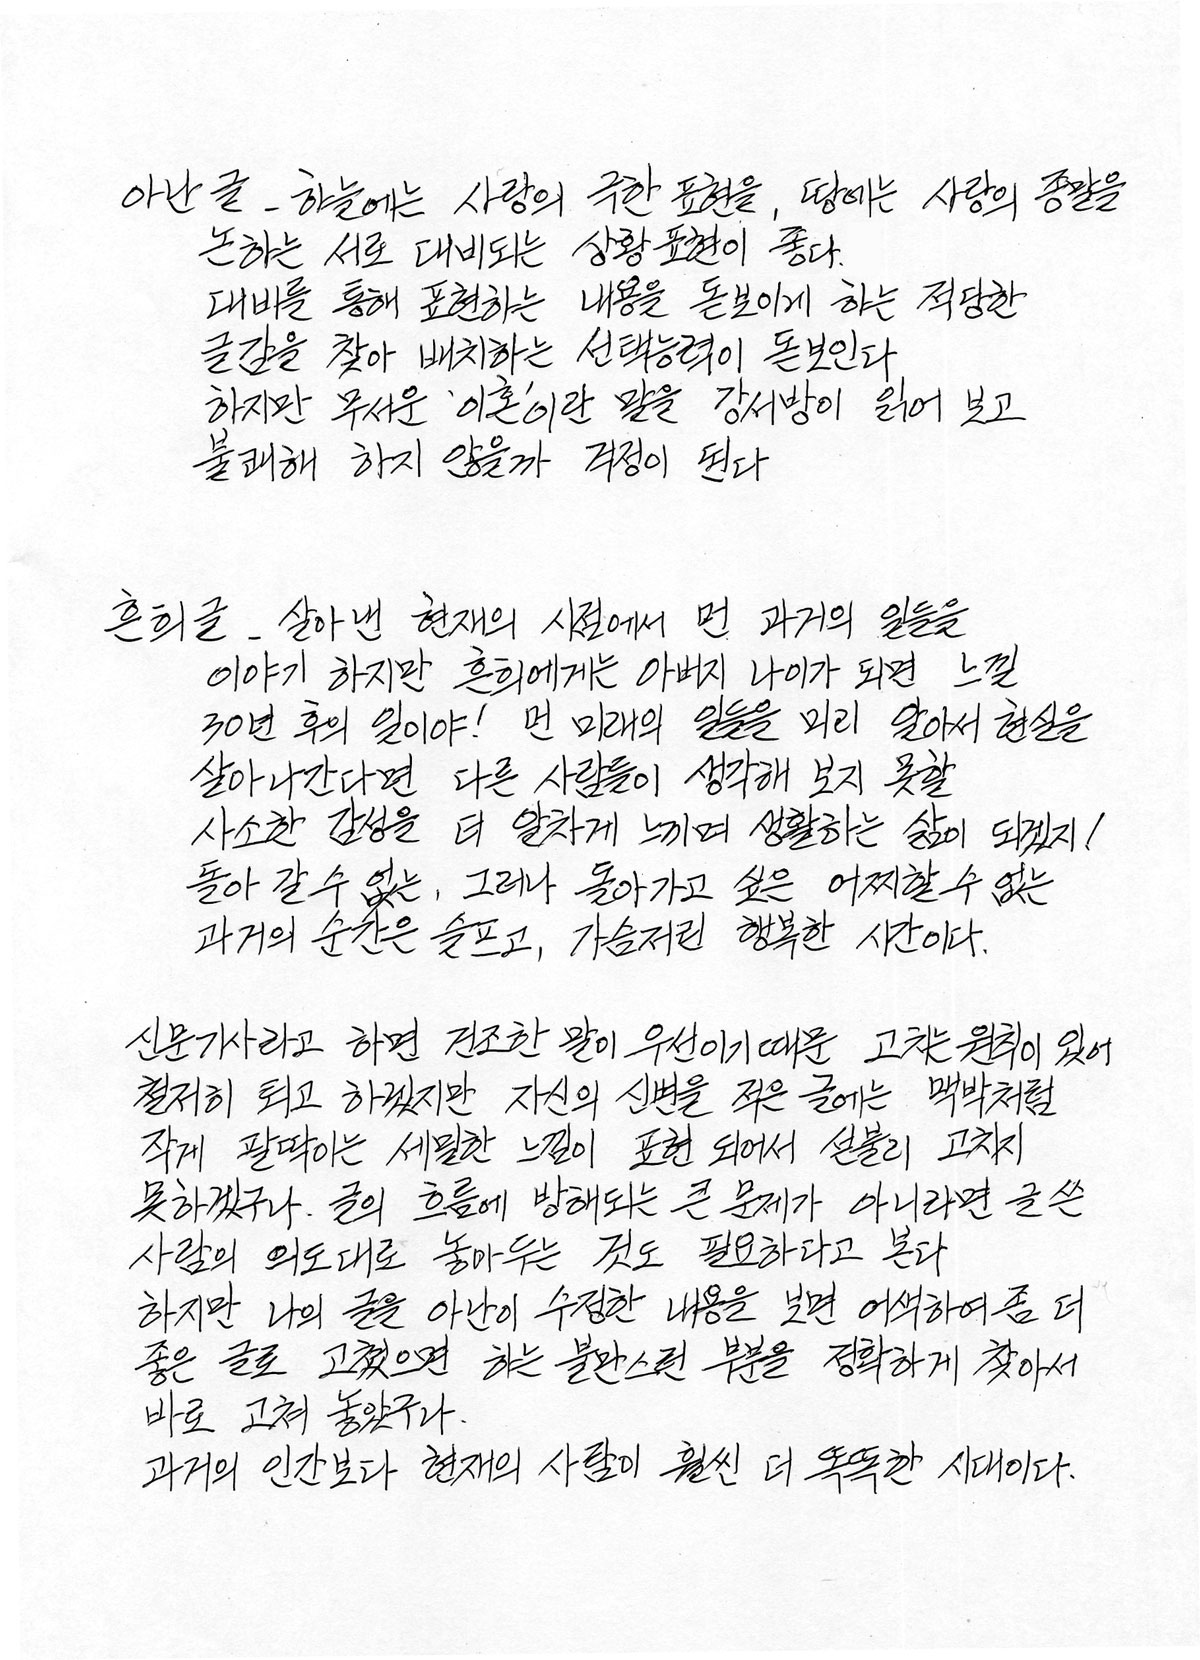 아난 글 - 하늘에는 사랑의 극한 표현을, 땅에는 사랑의 종말을
논하는 서로 대비되는 상황표현이 좋다.
대비를 통해 표현하는 내용을 돋보이게 하는 적당한
글감을 찾아 배치하는 선택능력이 돋보인다
하지만 무서운 '이혼'이란 말을 강서방이 읽어 보고
불쾌해 하지 않을까 걱정이 된다
흔희글 - 살아낸 현재의 시점에서 먼 과거의 일들을
이야기 하지만 흔희에게는 아버지 나이가 되면 느낄
30년 후의 일이야! 먼 미래의 일들을 미리 알아서 현실을
살아나간다면 다른 사람들이 생각해 보지 못할
사소한 감성을 더 알차게 느끼며 생활하는 삶이 되겠지!
돌아 갈 수 없는, 그러나 돌아가고 싶은 어찌할 수 없는
과거의 순간은 슬프고, 가슴저린 행복한 시간이다.
신문기사라고 하면 건조한 말이 우선이기때문 고치는 원칙이 있어
철저히 퇴고 하겠지만 자신의 신변을 적은 글에는 맥박처럼
작게 팔딱이는 세밀한 느낌이 표현 되어서 선불리 고치지
못하겠구나. 글의 흐름에 방해되는 큰 문제가 아니라면 글 쓴
사람의 의도대로 놓아두는 것도 필요하다고 본다
하지만 나의 글을 아난이 수정한 내용을 보면 어색하여 좀 더
좋은 글로 고쳤으면 하는 불만스런 부분을 정확하게 찾아서
바로 고쳐 놓았구나.
과거의 인간보다 현재의 사람이 훨씬 더 똑똑한 시대이다.